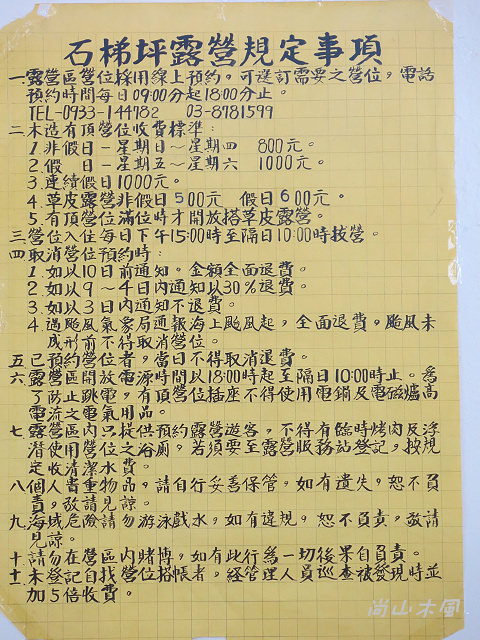 石梯坪露營規定事項
一.露營區營位採用線上預約，可選訂需要之營位，電話
預約時間每日09:00分起18:00分止。
TEL-0933-144782 03-8781599
二.木造有頂營位收費標準：
1.非假日－星期日～星期四 800元。
2.假 日－星期五～星期六 1000元。
3.連續假日1000元。
4.草皮露營非假日500元 假日600元。
5.有頂營位滿位時才開放搭草皮露營。
三.營位入住每日下午15:00時至隔日10:00時拔營。
四.取消營位預約時：
1.如以10日前通知。金額全面退費。
2.如以9～4日內通知以30%退費。
3.如以3日內通知不退費。
4.遇颱風氣象局通報海上颱風起，全面退費，颱風未
成形前不得取消營位。
五.已預約營位者，當日不得取消退費。
六.露營區開放電源時間以18:00時起至隔日10:00時止。為
了防止跳電，有頂營位插座不得使用電鍋及電磁爐高
電流之電氣用品。
七.露營區內只提供預約露營遊客，不得有臨時烤肉及浮
潛使用營位之浴廁，若須要至露營服務站登記，按規
定收清潔水費。
八.個人貴重物品，請自行妥善保管，如有遺失，恕不負
責，敬請見諒。
九.海域危險請勿游泳戲水，如有違規，恕不負責，敬請
見諒。
十.請勿在營區內賭博，如有此行為一切後果自負責。
十一.未登記自找營位搭帳者，經管理人員巡查被發現時並
加5倍收費。
尚山木風